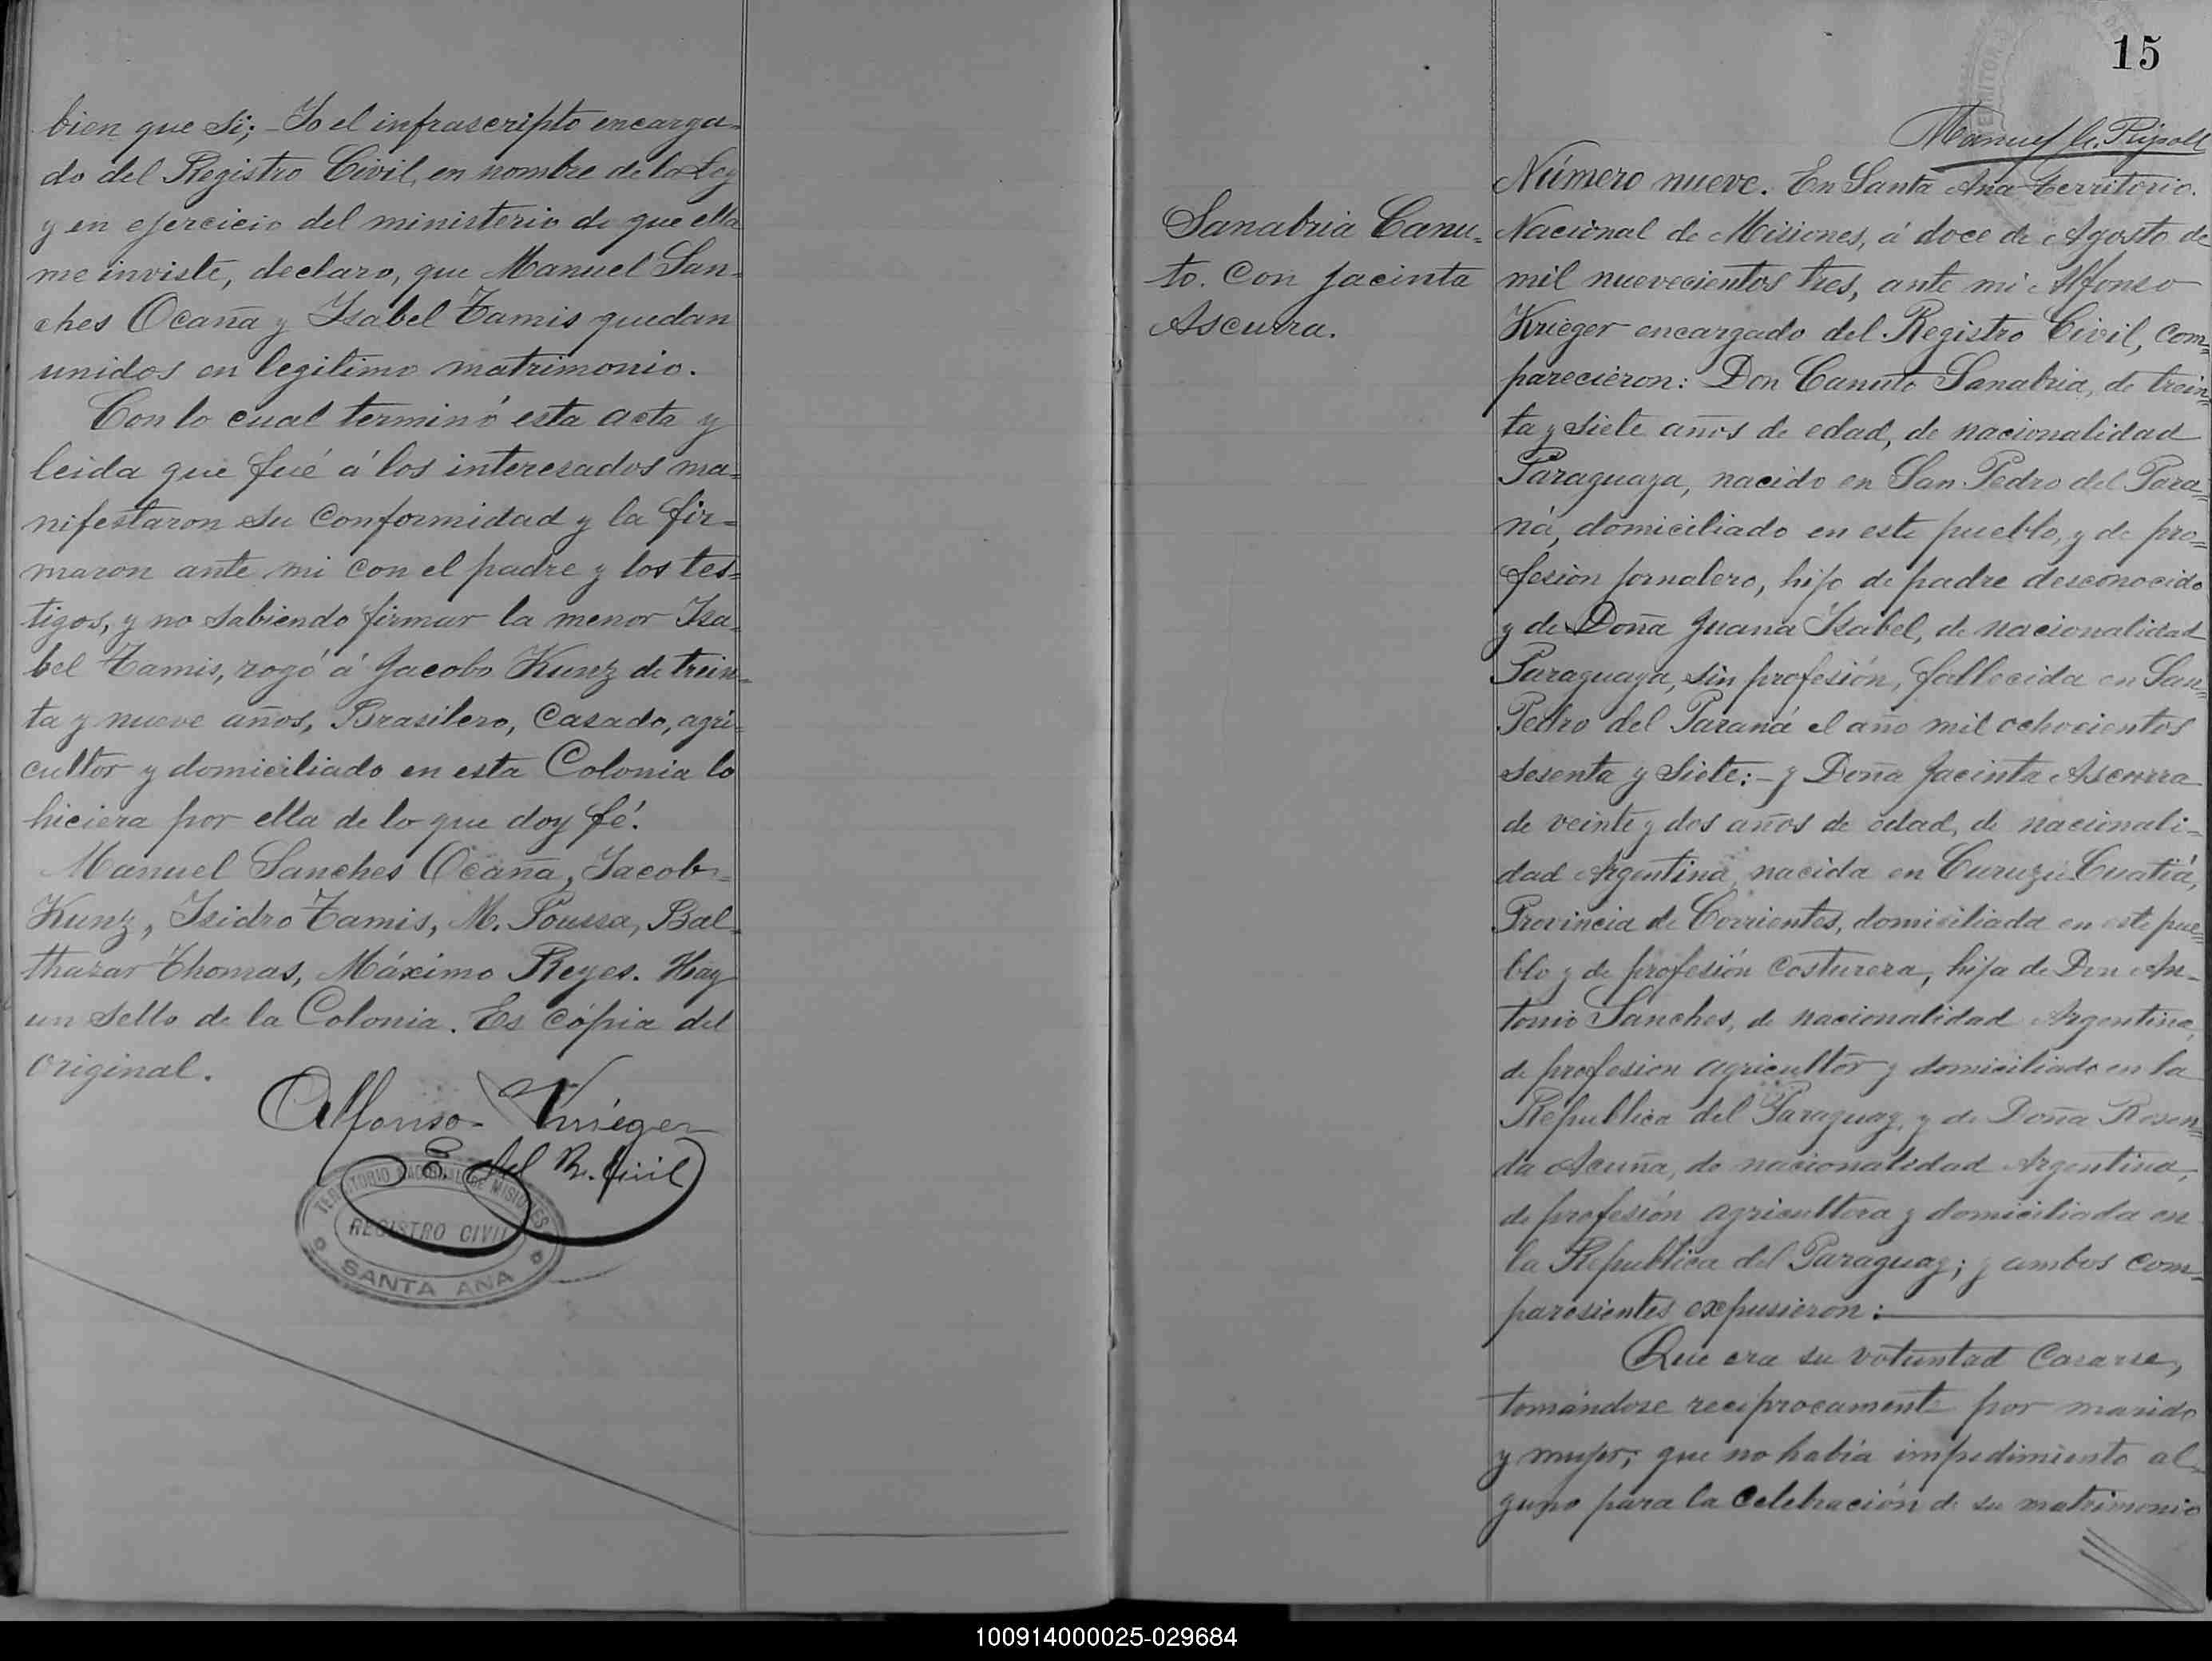 bien que si; Yo el infrascripto encarga-
do del Registro Civil, en nombre de la Ley
y en ejercicio del ministerio de que ella
me inviste, declaro, que Manuel San-
ches Ocaña y Isabel Tamis quedan
unidos en legitimo matrimonio.
Con lo cual terminó esta acta y
leida que fué á los interesados ma-
nifestaron su conformidad y la fir=
maron ante mi con el padre y los tes=
tigos, y no sabiendo firmar la menor Isa-
bel Tamis, rogó á Jacobo Kunz de trein=
ta y nueve años, Brasilero, casado, agri-
cultor y domiciliado en esta Colonia lo
hiciera por ella de lo que doy fé.
Manuel Sanches Ocaña, Jacob
Kunz, Isidro Tamis, M. Poussa, Bal-
thazar Thomas, Máximo Reyes. Hay
un sello de la Colonia. Es cópia del
original.
Alfonso Krieger
E. del R. Civil
TERRITORIO NACIONAL DE MISIONES
REGISTRO CIVIL
SANTA ANA
15
Manuel Ripoll
Sanabria Canu-
to. Con Jacinta
Ascurra.
Número nueve. En Santa Ana Territorio
Nacional de Misiones, á doce de Agosto de
mil nuevecientos tres, ante mi Alfonso
Krieger encargado del Registro Civil, com=
parecieron: Don Canuto Sanabria, de trein=
ta y siete años de edad, de nacionalidad
Paraguaya, nacido en San Pedro del Para-
ná, domiciliado en este pueblo, y de pro=
fesión jornalero, hijo de padre desconocido
y de Doña Juana Isabel, de nacionalidad
Paraguaya, sin profesión, fallecida en San=
Pedro del Paraná el año mil ochocientos
sesenta y siete:- y Doña Jacinta Ascurra
de veinte y dos años de edad, de nacionali-
dad Argentina, nacida en Curuzú Cuatiá,
Provincia de Corrientes, domiciliada en este pue=
blo y de profesión costurera, hija de Don An-
tonio Sanches, de nacionalidad Argentina,
de profesion agricultor y domiciliado en la
Republica del Paraguay, y de Doña Rosen=
da Acuña, de nacionalidad Argentina,
de profesión agricultora y domiciliada en
la Republica del Paraguay; y ambos com=
paresientes expusieron:
Que era su voluntad casarse,
tomándose reciprocamente por marido
y mujer; que no habia impedimiento al-
guno para la celebración de su matrimonio
100914000025-029684